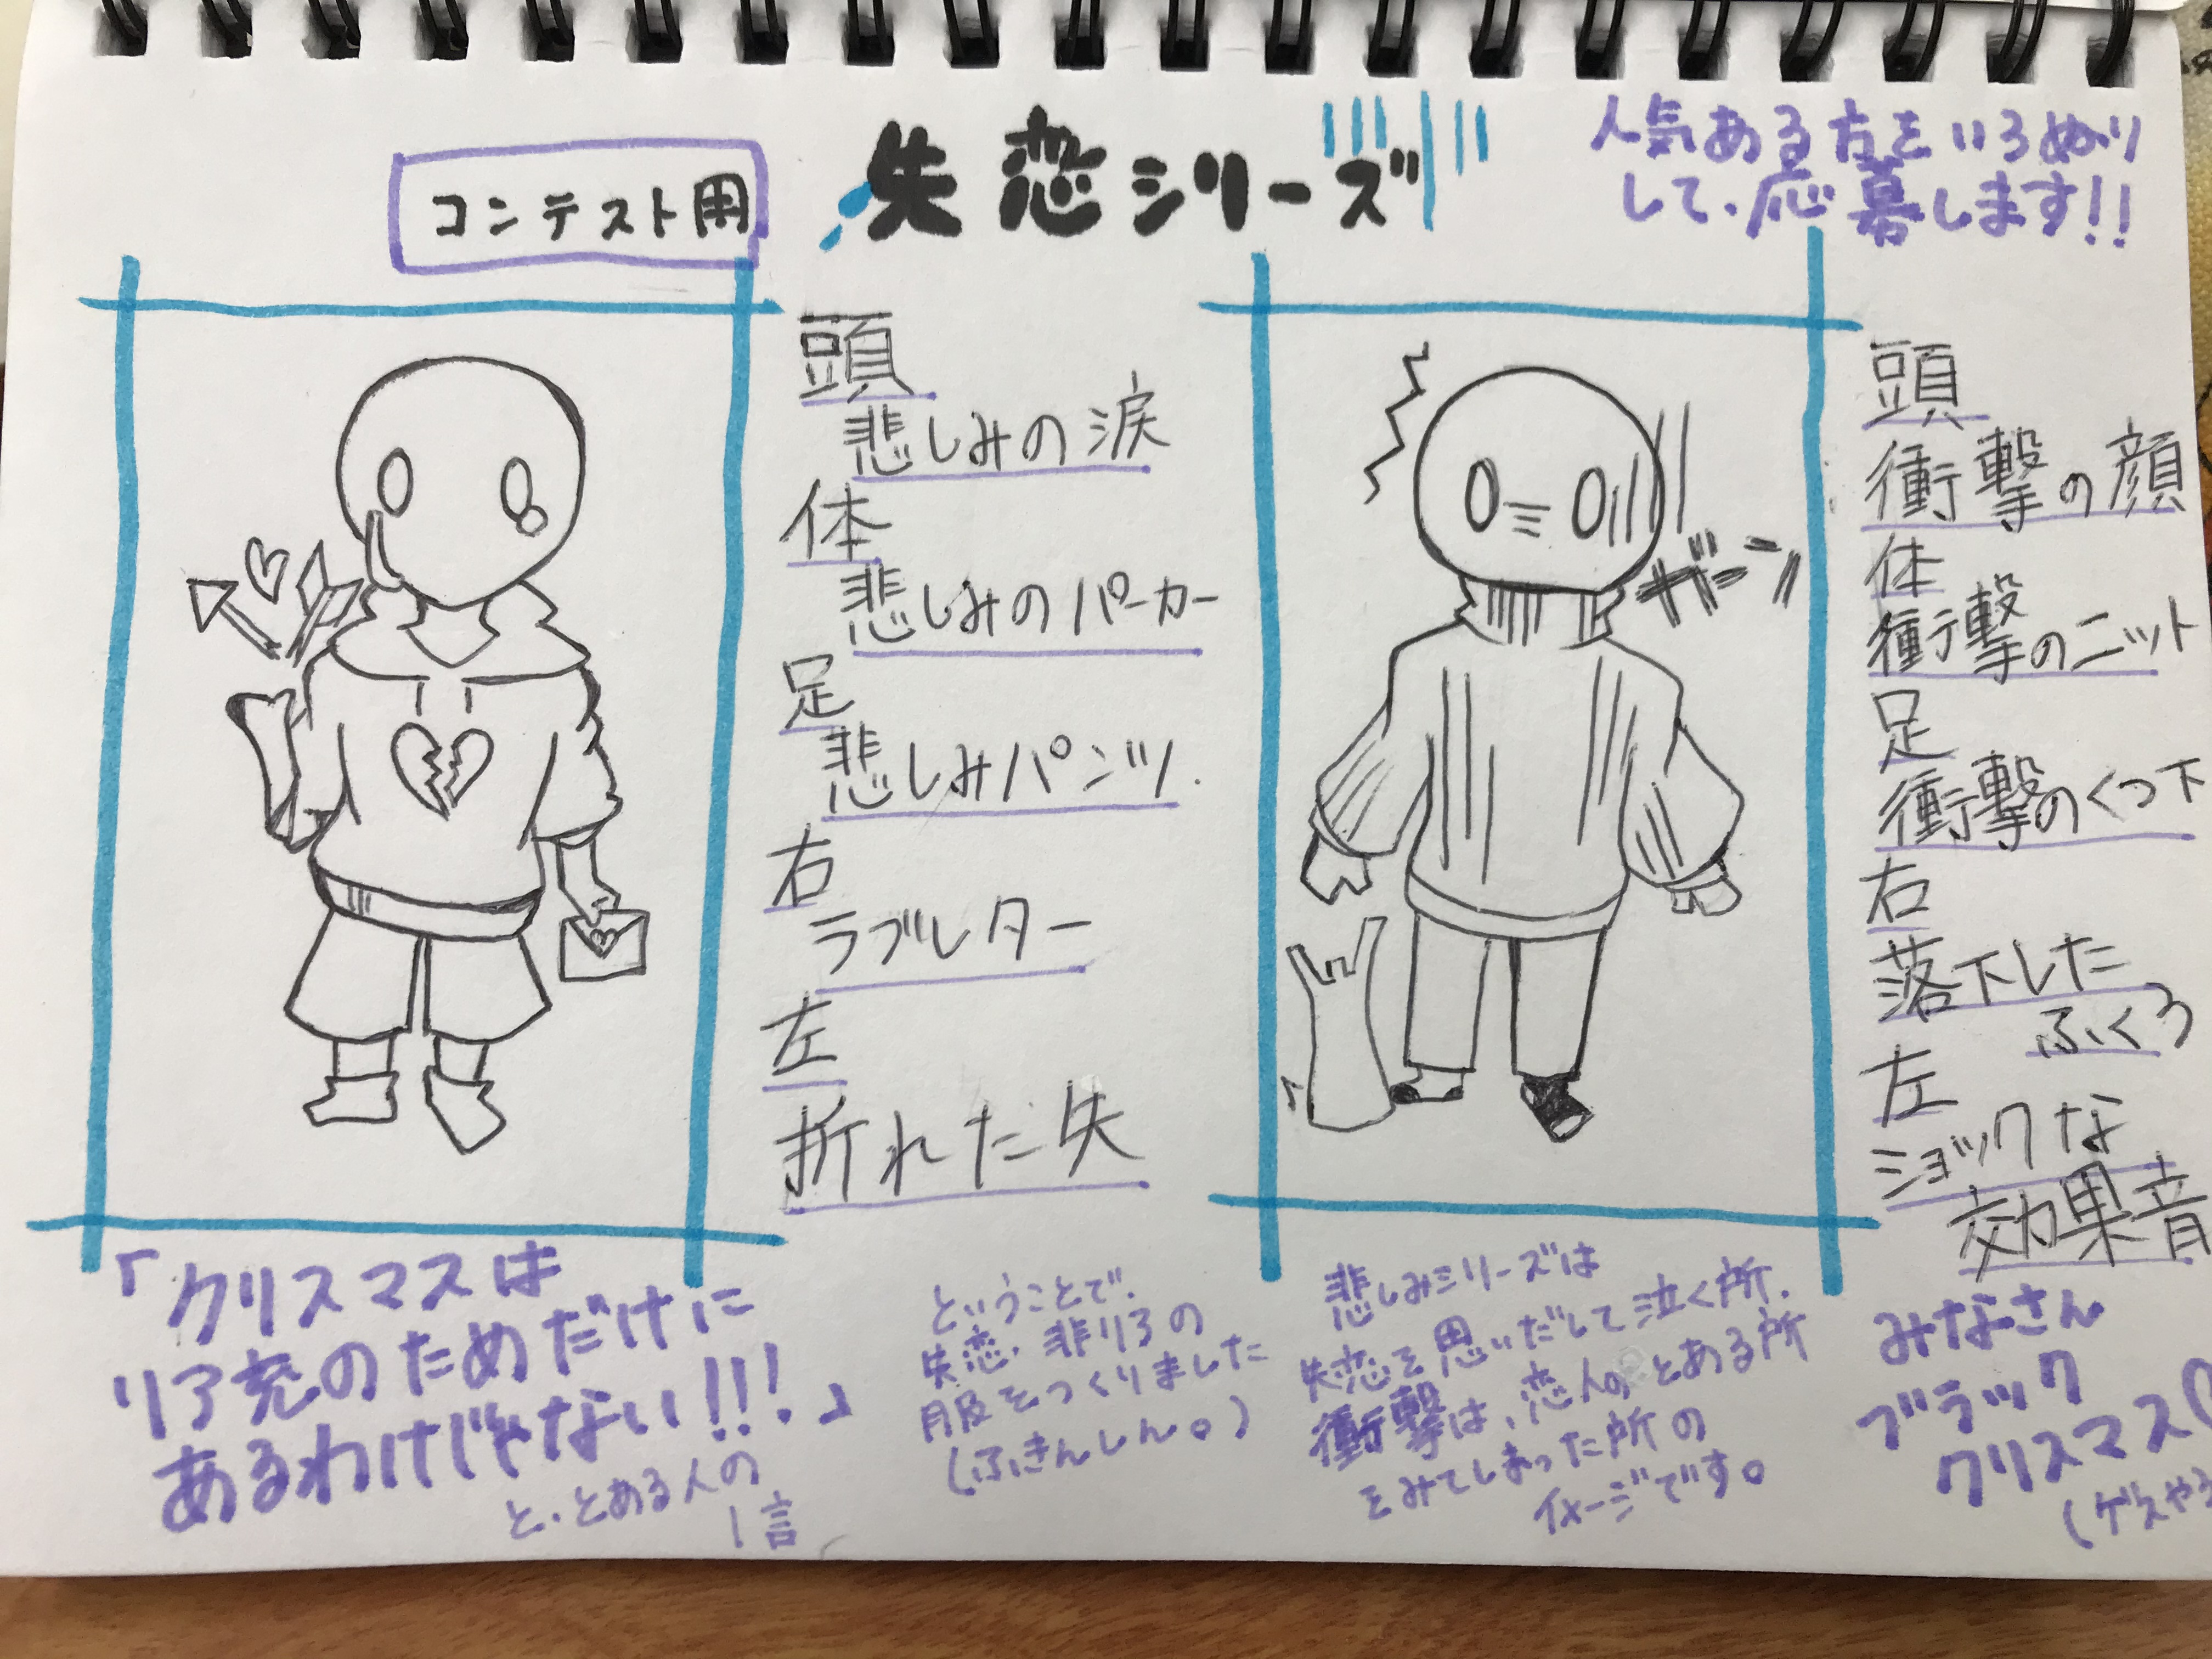 コンテスト用
失恋シリーズ
人気ある方をいろぬり
して、応募します!!
頭
悲しみの涙
体
悲しみのパーカー
足
悲しみパンツ.
右
ラブレター
左
折れた矢
ガーン
頭
衝撃の顔
体
衝撃のニット
足
衝撃のくつ下
右
落下した
ふくろ
左
ショックな
効果音
「クリスマスは
リア充のためだけに
あるわけじゃない!!!」
と、とある人の
1言
ということで、
失恋、非リアの
服をつくりました
(ふきんしん。)
悲しみシリーズは
失恋を思いだして泣く所、
衝撃は、恋人のとある所
をみてしまった所の
イメージです。
みなさん
ブラック
クリスマス
(ゲスや